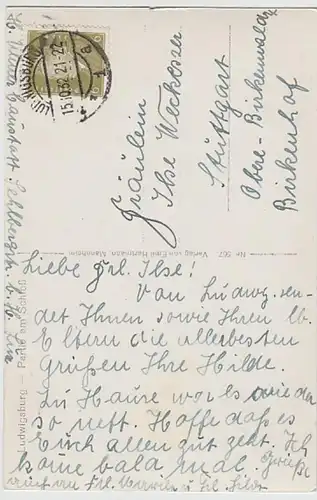 LUDWIGSBURG
15.10.32. 21-22
Fräulein
Ilse Weckesser
Stuttgart
Obere-Birkenwaldstr.
Birkenhof
Nr. 567 Verlag von Emil Hartmann, Mannheim
Ludwigsburg — Partie am Schloß
Liebe Frl. Ilse!
Von Ludwig. sen-
det Ihnen sowie Ihren lb.
Eltern die allerbesten
Grüßen Ihre Hilde.
Zu Hause war es wieder
so nett. Hoffe daß es
Euch allen gut geht. Ich
kome bald mal. Grüße
auch an Frl.